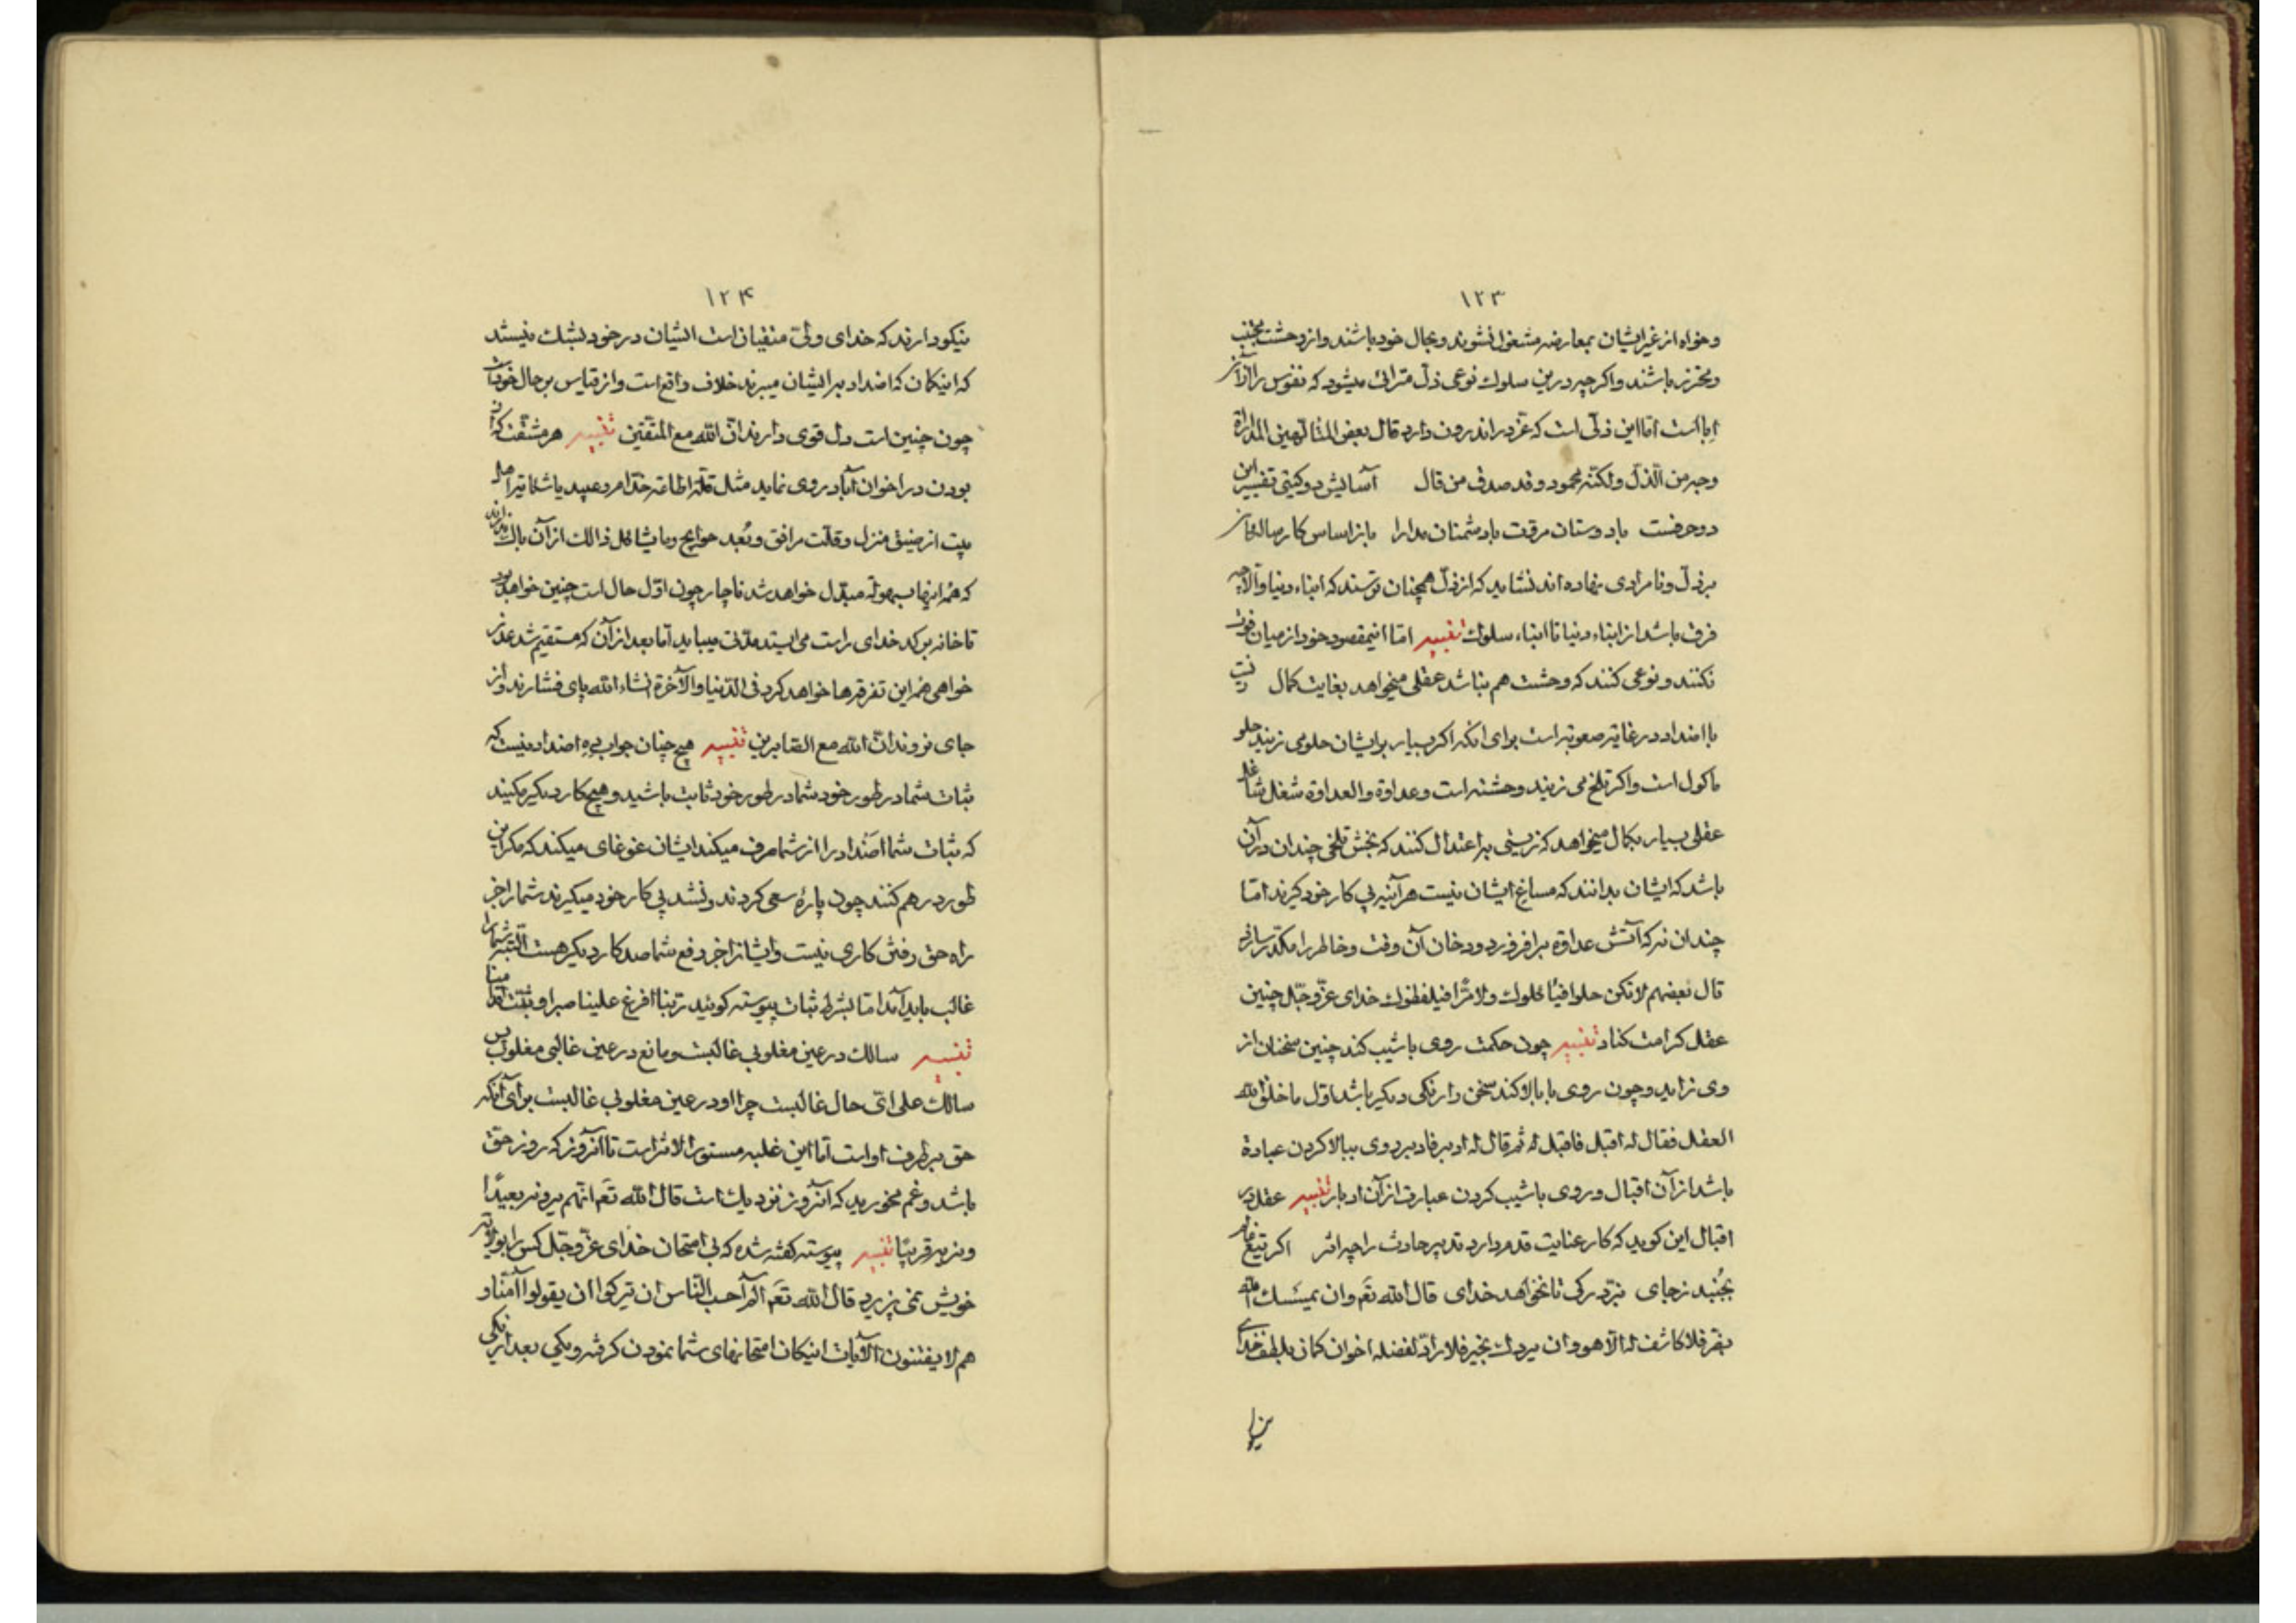 ۱۲۳
وخواه از غیر ایشان بمعارضه مشغول نشوند و بحال خود باشند و از وحشت مجتنب
و محترز باشند و اگر چه درین سلوك نوعی ذل مترائی میشود که نفوس را از آن
ابا است اما این ذلی است که عز در اندرون دارد قال بعض المتألهین المداراة
وجه من الذل ولكنه محمود وقد صدق من قال آسایش دو گیتی تفسیر این
دو حرفست با دوستان مروت با دشمنان مدارا باز اساس کار رسالهٔ
بر ذل و نامرادی نهاده اند نشاید که از ذل همچنان ترسند که ابناء دنیا والا چه
فرق باشد از ابناء دنیا تا ابناء سلوك تفسیر اما اینمقصود خود از میان فوت
نکنند و نوعی کنند که وحشت هم نباشد عقلی میخواهد بغایت کمال
با اضداد در غایة صعوبة است برای آنکه اگر بسیار برایشان حلو می زنید حلو
ماکول است و اگر تلخ می زنید وحشت است و عداوة والعداوة شغل شاغل
عقلی بسیار بکمال میخواهد که زیستی به اعتدال کنند که بخش تلخی چندان در آن
باشد که ایشان بدانند که مساغ ایشان نیست هر آینه پی کار خود گیرند اما
چندان نه که آتش عداوة برافروزد و دخان آن وقت و خاطر را مکدر
قال بعضهم لا تكن حلوا فيأكلوك ولا مرّا فيلفظوك خدای عزّ وجلّ چنین
عقل کرامت کناد تفسیر چون حکمت روی باشیب کند چنین سخنان از
وی زاید و چون روی با بالا کند سخن دار نکی دیگر باشد اول ما خلق الله
العقل فقال له اقبل فاقبل له ثم قال له ادبر فادبر روی ببالا کردن عبادة
باشد از آن اقبال و روی باشیب کردن عبارت از آن ادبار تفسیر عقل در
اقبال این گوید که کار عنایت قدم دارد تدبیر حادث را چه اثر اگر تیغ عالم
بجنبد زجای نبرد رگی تا نخواهد خدای قال الله تعَ وان یمسسك الله
بضر فلا كاشف له الا هو وان یردك بخیر فلا رادّ لفضله اخوان کمان بلطف خدای
۱۲۴
نیکو دارند که خدای ولیّ متقیان است ایشان در خود بشك نیستند
که اینکمان که اضداد برایشان میبرند خلاف واقع است و از قیاس بر حال خودت
چون چنین است دل قوی دارند انّ الله مع المتقین تفسیر هر مشقت که
بودن در اخوان آباد روی نماید مثل قلة اطاعة خدام و عبید یا شما
بیت از ضیق منزل و قلّت مرافق و بُعد حوایج وما یشاکل ذالك از آن باك
که همه اینها بسهولة مبدّل خواهد شد ناچار چون اوّل حال است چنین خواهد بود
تا خانه بر کد خدای راست می ایستد مدّتی میباید اما بعد از آن که مستقیم شد
خواهی همه این تفرقه ها خواهد کرد فی الدنیا والآخرة انشاء الله پای فشارند و از
جای نروند انّ الله مع الصابرین تفسیر هیچ چنان جواب اضداد نیست که
ثبات شما در طور خود شما در طور خود ثابت باشید و هیچ کار دیگر مکنید
که ثبات شما اضداد را از شما صرف میکند ایشان غوغای میکند که مگر این
طور در هم کنند چون پارهٔ سعی کردند و نشد پی کار خود میگیرند شما را جز
راه حق رفتن کاری نیست و ایشانرا جز دفع شما صد کار دیگر هست البته شما را
غالب باید آمد اما بشرط ثبات پیوسته گویید ربّنا افرغ علینا صبرا وثبّت اقدامنا
تفسیر سالك در عین مغلوبی غالبست و مانع در عین غالبی مغلوب پس
سالك علی ایّ حال غالبست چرا او در عین مغلوبی غالبست برای آنکه
حق بر طرف اواست اما این غلبه مستور الاثر است تا آنروز که روز حق
باشد و غم مخورید که آنروز نزدیك است قال الله تعَ انّهم یرونه بعیدًا
ونریه قریبًا تفسیر پیوسته گفته شده که بی امتحان خدای عزّ وجلّ کس را بولایة
خویش نمی پزیرد قال الله تعَ الم أحسب الناس ان یترکوا ان یقولوا آمنّا و
هم لا یفتنون الآیات اینکان امتحانهای شما نمودن گرفته و یکی بعد از یکی